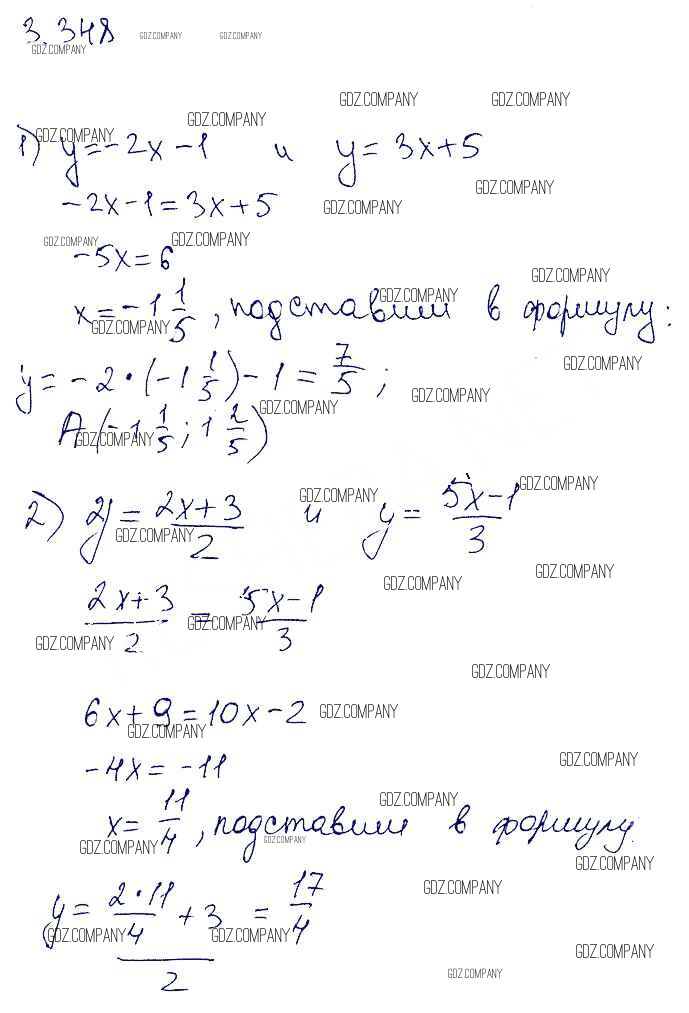 3.348
GDZ.COMPANY GDZ.COMPANY GDZ.COMPANY
GDZ.COMPANY GDZ.COMPANY
GDZ.COMPANY GDZ.COMPANY
1) y = -2x - 1 и y = 3x + 5
GDZ.COMPANY
-2x - 1 = 3x + 5 GDZ.COMPANY
GDZ.COMPANY GDZ.COMPANY
-5x = 6
GDZ.COMPANY
x = -1 1/5, подставим в формулу:
GDZ.COMPANY GDZ.COMPANY
GDZ.COMPANY
y = -2 · (-1 1/5) - 1 = 7/5;
GDZ.COMPANY GDZ.COMPANY
A (-1 1/5; 1 2/5)
GDZ.COMPANY
2) y = (2x + 3)/2 и y = (5x - 1)/3
GDZ.COMPANY GDZ.COMPANY GDZ.COMPANY
GDZ.COMPANY GDZ.COMPANY
(2x + 3)/2 = (5x - 1)/3
GDZ.COMPANY GDZ.COMPANY
GDZ.COMPANY
6x + 9 = 10x - 2 GDZ.COMPANY
GDZ.COMPANY
-4x = -11
GDZ.COMPANY
GDZ.COMPANY
x = 11/4, подставим в формулу.
GDZ.COMPANY GDZ.COMPANY
GDZ.COMPANY
GDZ.COMPANY
y = ((2 · 11)/4 + 3)/2 = 17/4
GDZ.COMPANY GDZ.COMPANY GDZ.COMPANY
GDZ.COMPANY